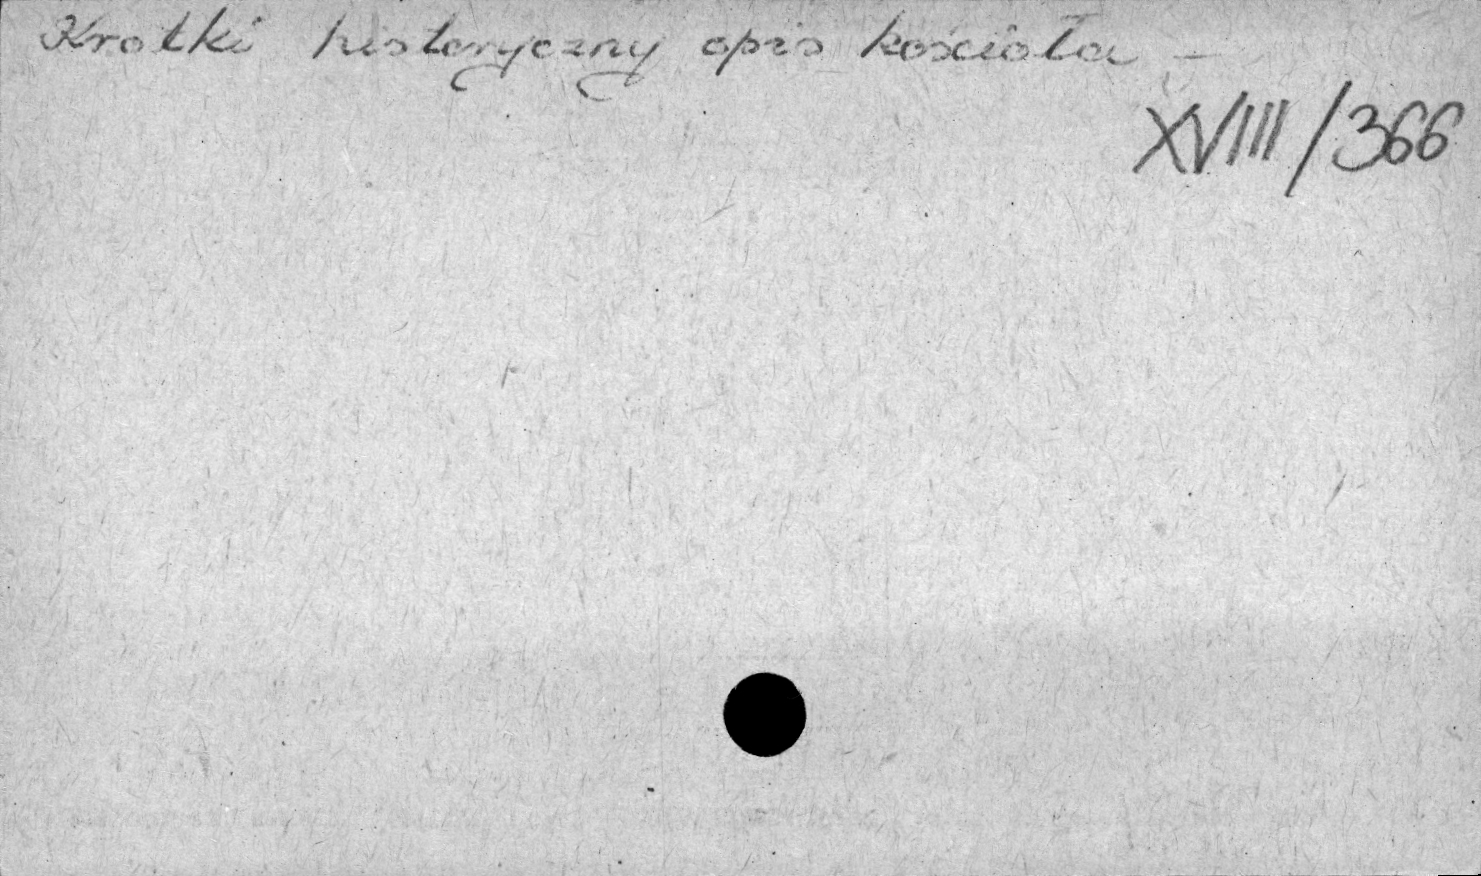 Krotki historyczny opis kościoła –
XVIII/366